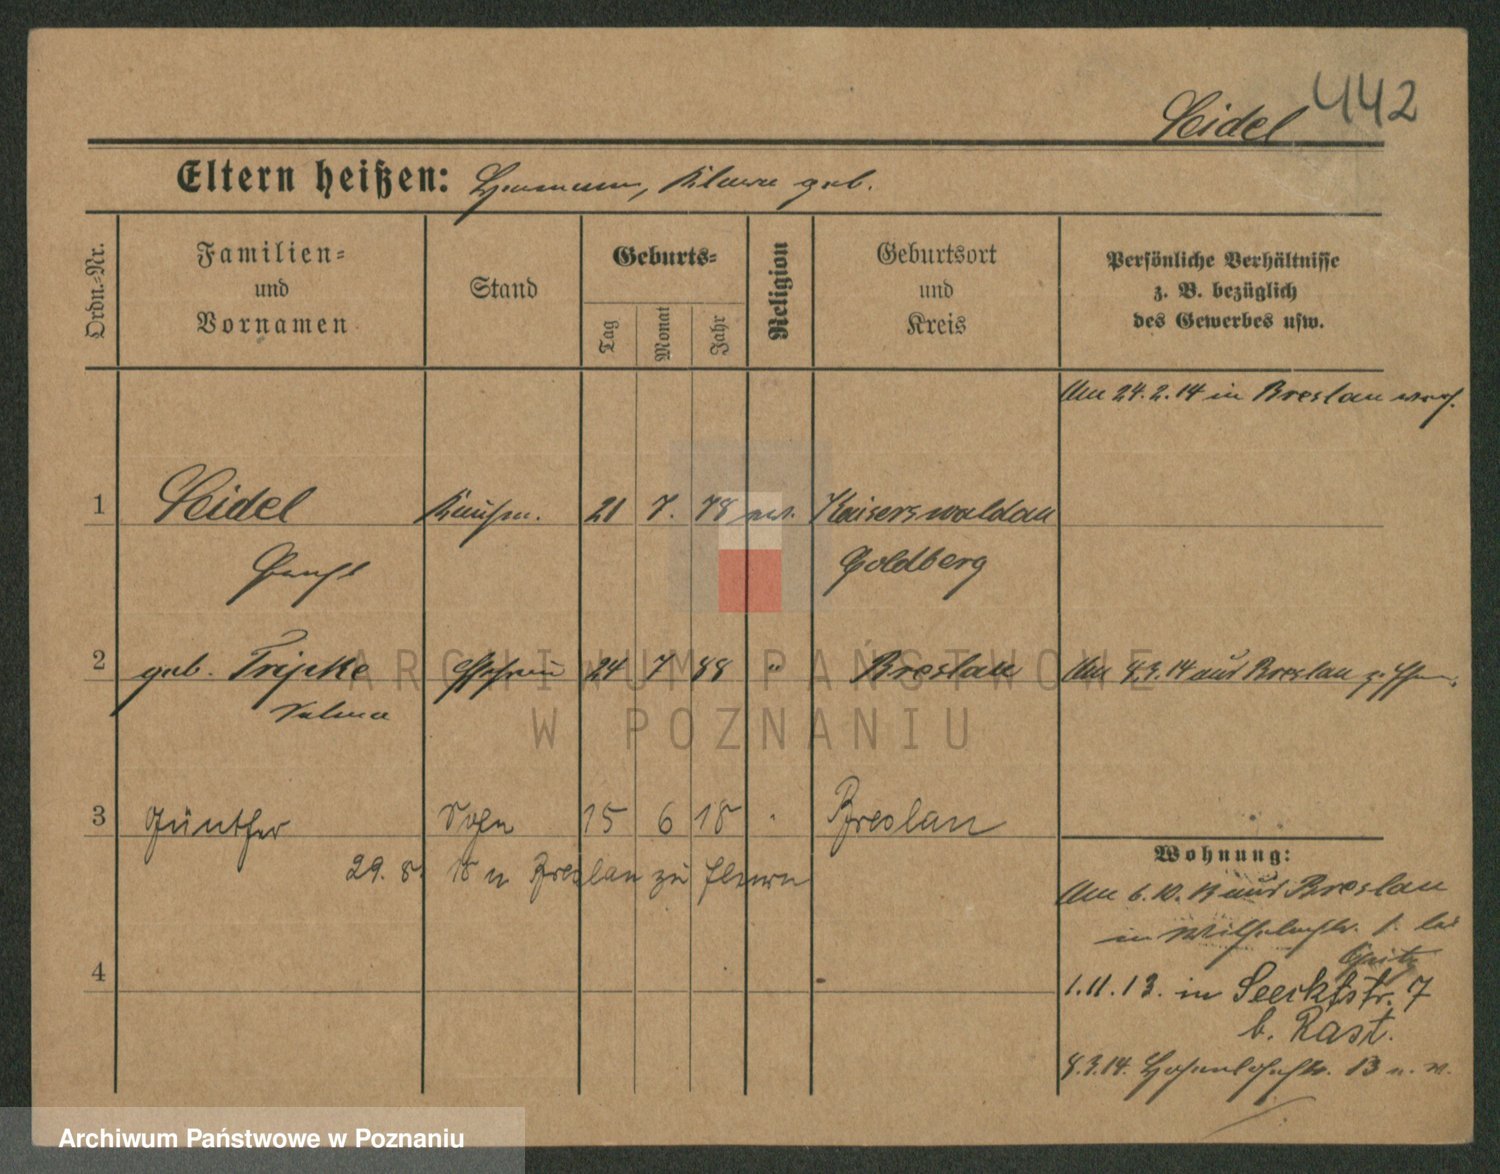 442
Seidel
Eltern heißen: Hermann, Klara geb.
Ordn.-Nr.
Familien-
und
Vornamen
Stand
Geburts-
Tag
Monat
Jahr
Religion
Geburtsort
und
Kreis
Persönliche Verhältnisse
z. B. bezüglich
des Gewerbes usw.
Am 24.2.14 in Breslau
1 Seidel Kaufm. 21 7. 78 ev. Kaiserswaldau
Goldberg
2 geb. Tripke Ehefrau 24 7 88 " Breslau Am 4.3.14 aus Breslau
Selma
3 Günther Sohn 15 6 18 Breslau
29. 8. 18 v Breslau zu Eltern
Wohnung:
Am 6.10.13 aus Breslau
in Wilhelmstr. bei
Opitz
4
1.11.13. in Seecktstr. 7
b. Rast.
8.3.14. Hohenlohestr. 13
ARCHIWUM PAŃSTWOWE
W POZNANIU
Archiwum Państwowe w Poznaniu